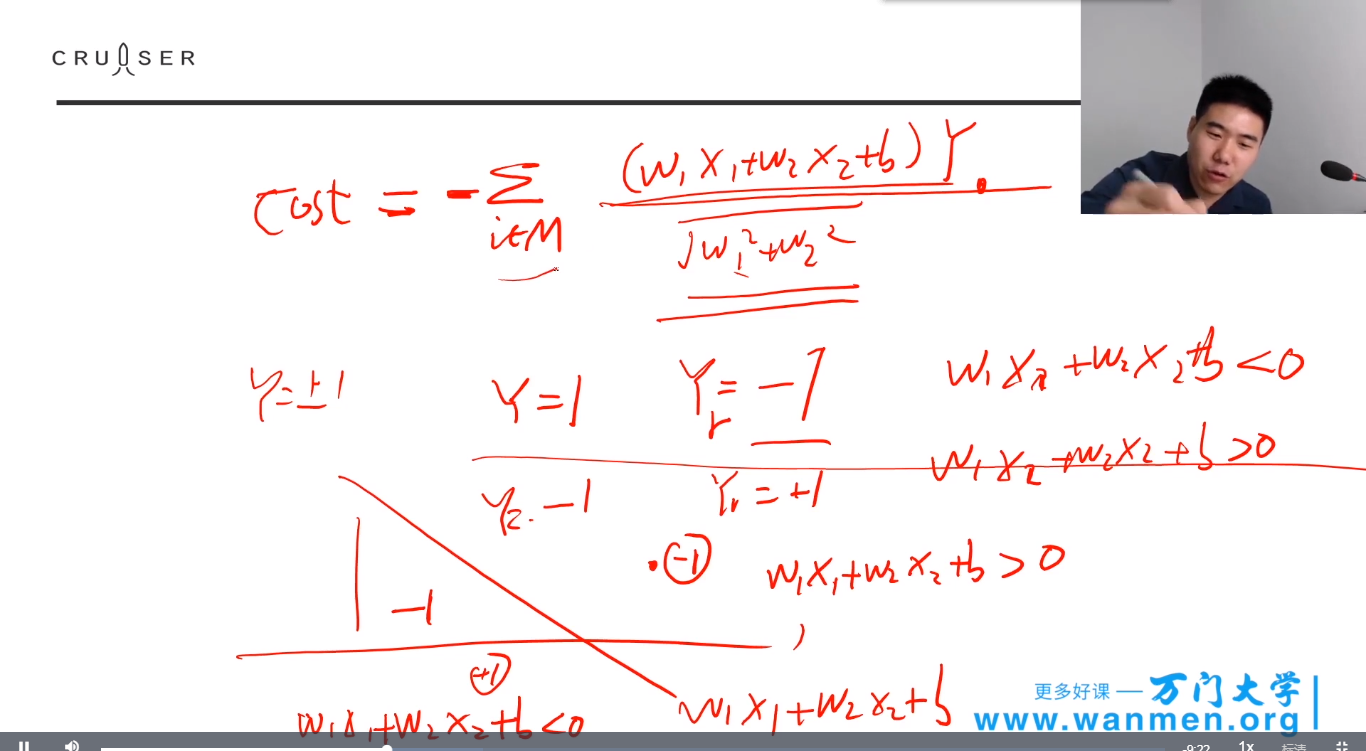 CRUISER
Cost = - ∑ i∈M (w₁x₁+w₂x₂+b)Y / √w₁²+w₂²
Y=±1
Y=1
Yr=-1
w₁x₁+w₂x₂+b<0
w₁x₂+w₂x₂+b>0
Y=-1
Yr=+1
-1
w₁x₁+w₂x₂+b>0
-1
+1
w₁x₁+w₂x₂+b<0
w₁x₁+w₂x₂+b
更多好课 — 万门大学
www.wanmen.org
-9:22
1x
标清